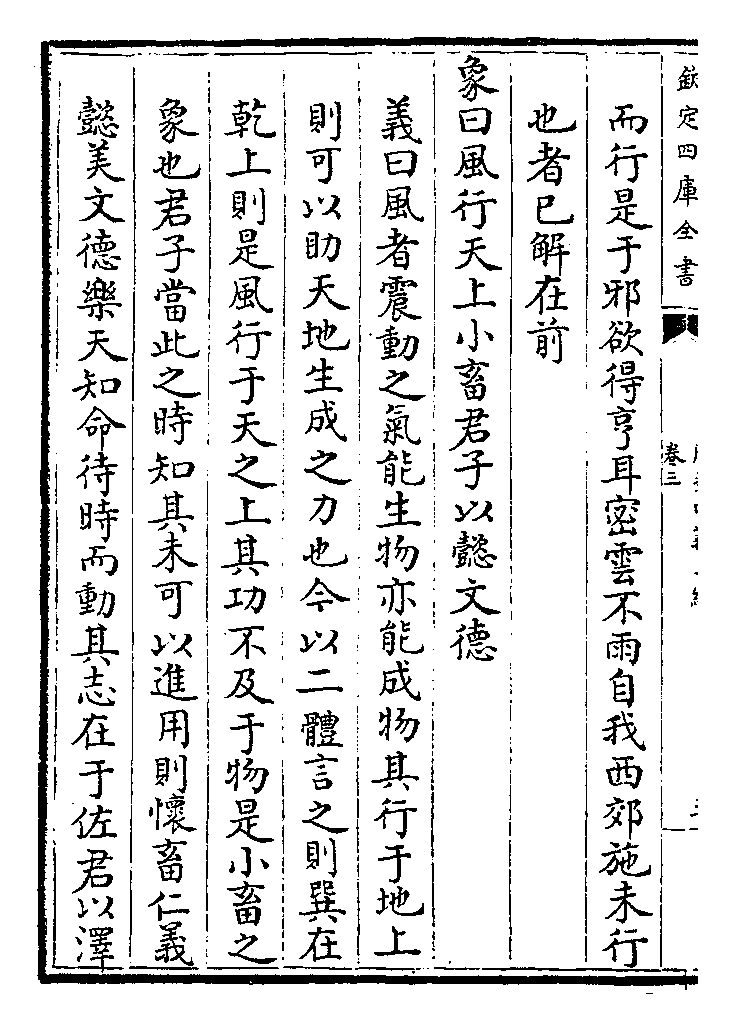 欽定四庫全書
卷三
而行是于邪欲得亨耳密雲不雨自我西郊施未行
也者已解在前
象曰風行天上小畜君子以懿文德
義曰風者震動之氣能生物亦能成物其行于地上
則可以助天地生成之力也今以二體言之則巽在
乾上則是風行于天之上其功不及于物是小畜之
象也君子當此之時知其未可以進用則懷畜仁義
懿美文德樂天知命待時而動其志在于佐君以澤